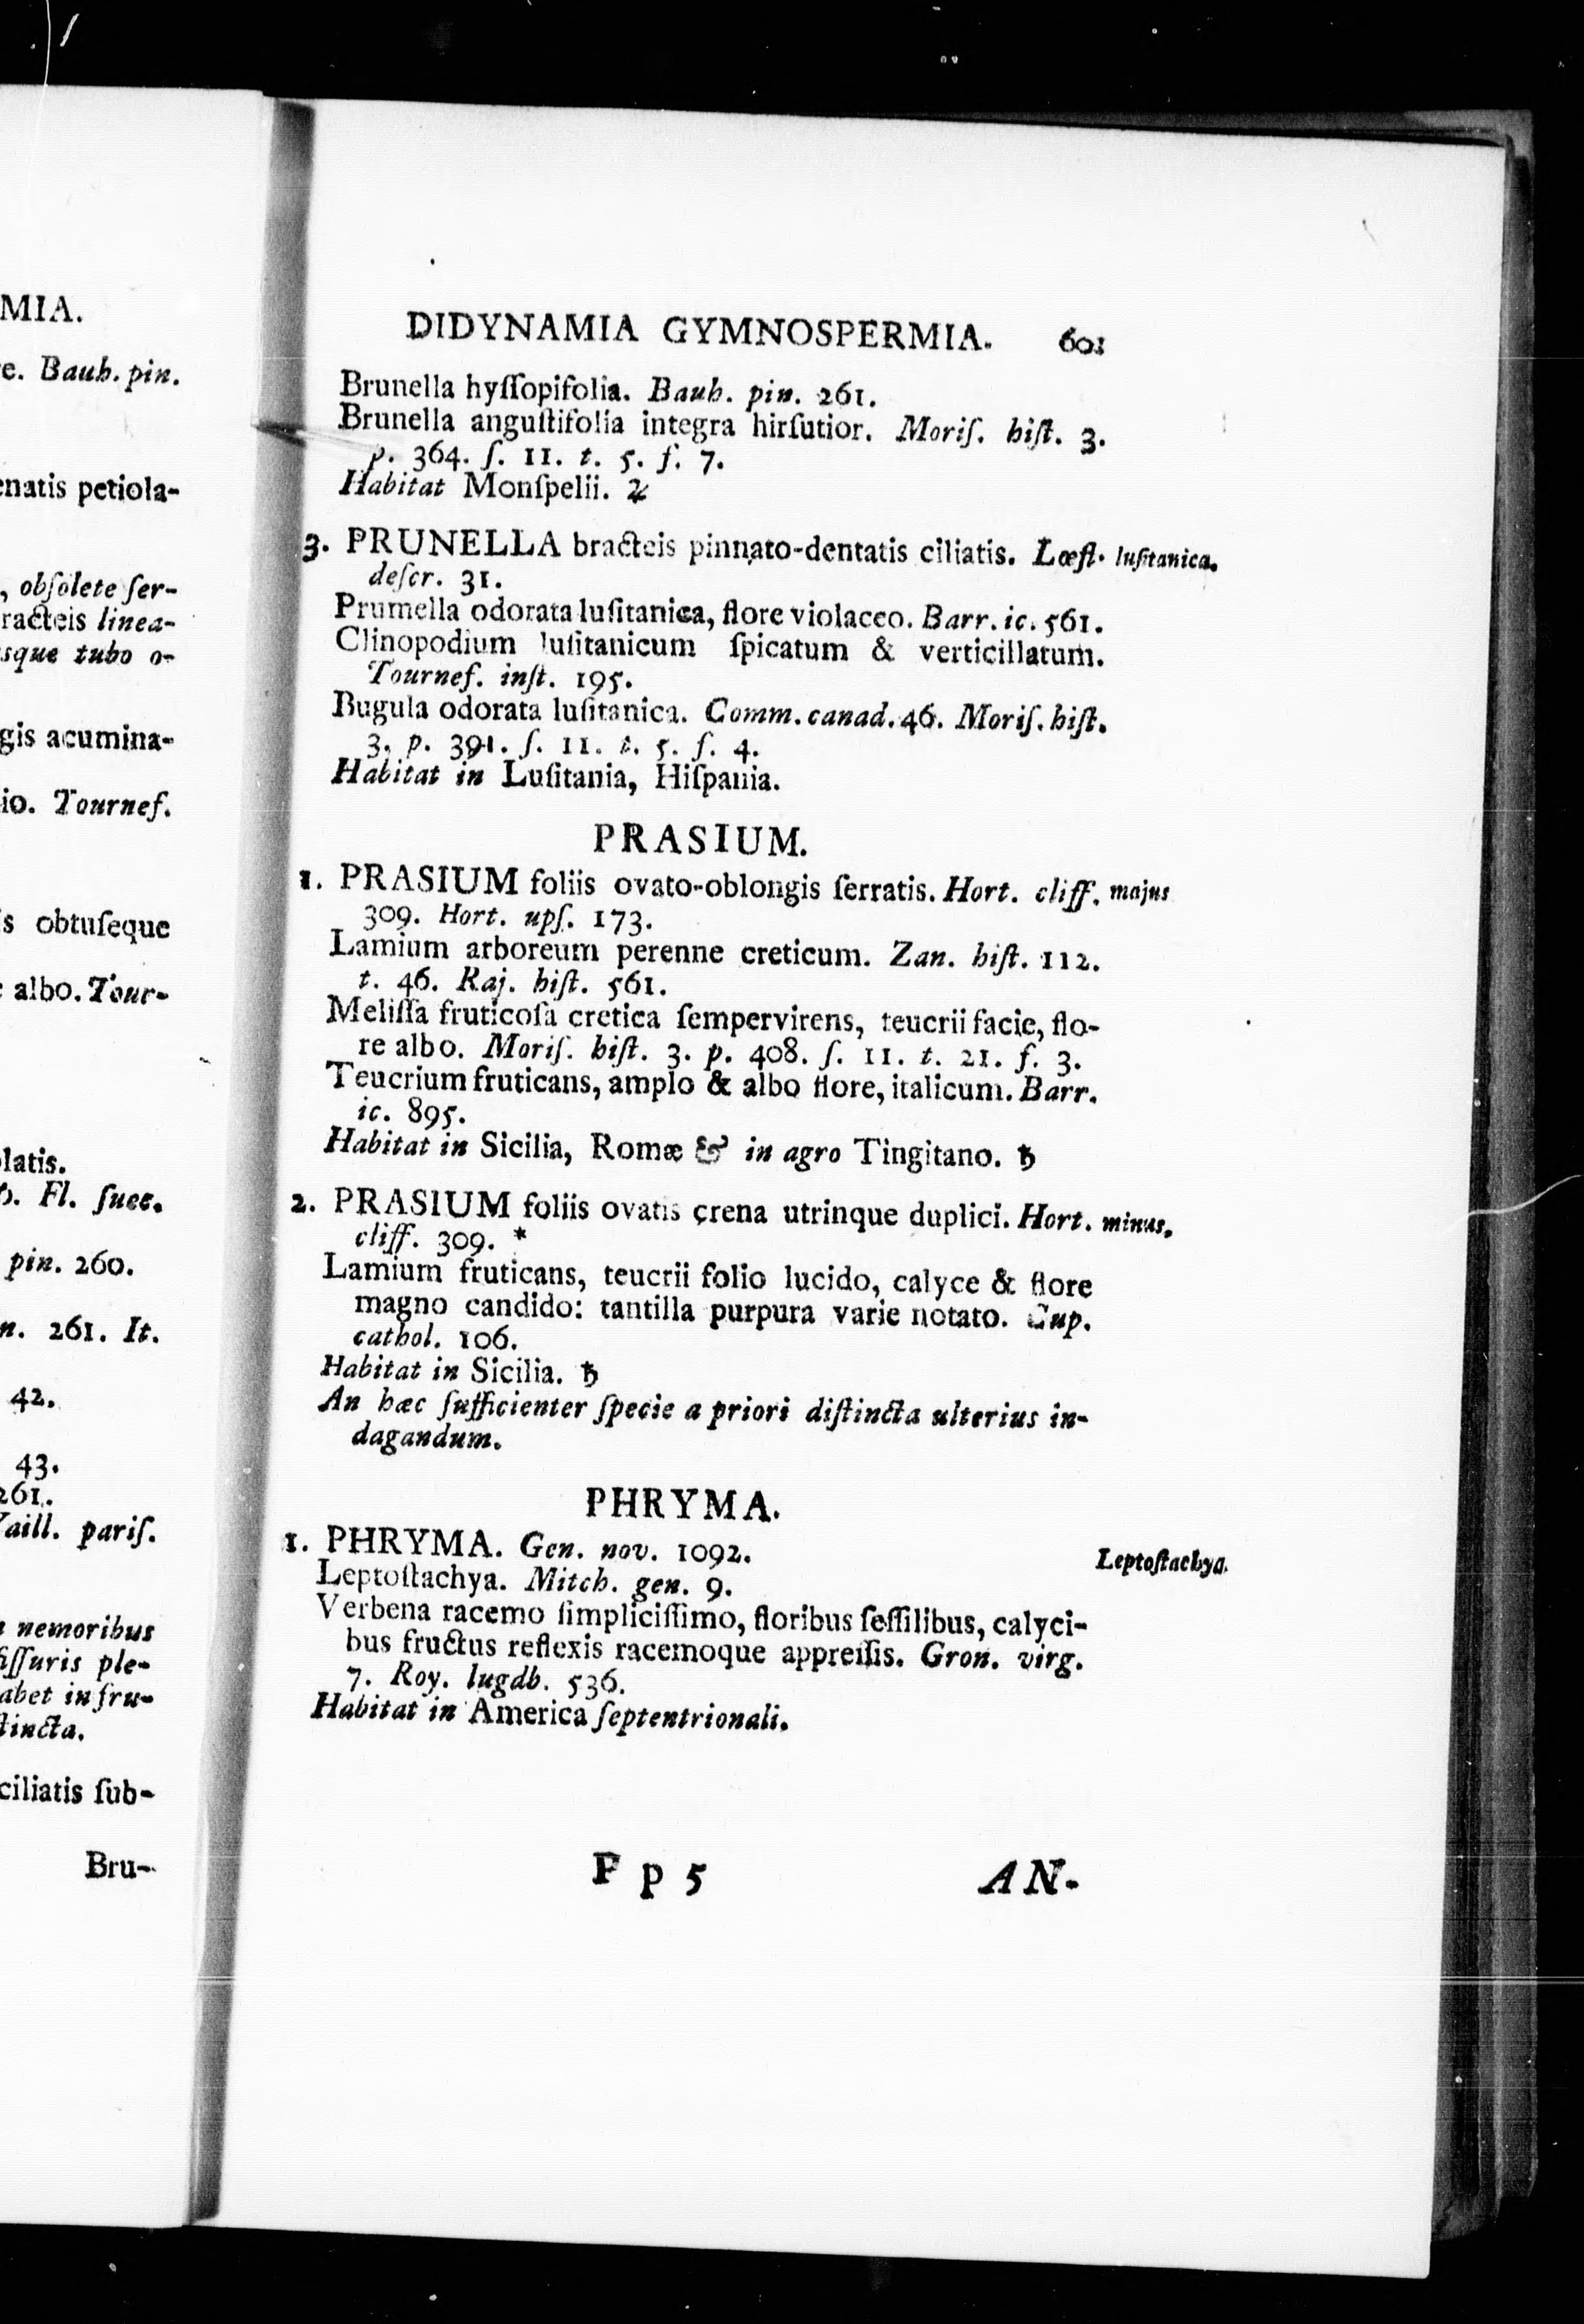 MIA.
e. Bauh. pin.
enatis petiola-
, obſolete ſer-
racteis linea-
sque tubo o-
gis acumina-
io. Tournef.
s obtuſeque
albo. Tour-
latis.
Fl. ſuec.
pin. 260.
n. 261. It.
42.
43.
261.
Vaill. pariſ.
nemoribus
fiſſuris ple-
abet in fru-
ſtincta.
ciliatis ſub-
Bru-
DIDYNAMIA GYMNOSPERMIA. 601
Brunella hyſſopifolia. Bauh. pin. 261.
Brunella anguſtifolia integra hirſutior. Moriſ. hiſt. 3.
p. 364. ſ. 11. t. 5. f. 7.
Habitat Monſpelii. ♃
3. PRUNELLA bracteis pinnato-dentatis ciliatis. Lœfl. luſitanica.
deſcr. 31.
Prumella odorata luſitanica, flore violaceo. Barr. ic. 561.
Clinopodium luſitanicum ſpicatum & verticillatum.
Tournef. inſt. 195.
Bugula odorata luſitanica. Comm. canad. 46. Moriſ. hiſt.
3. p. 391. ſ. 11. t. 5. f. 4.
Habitat in Luſitania, Hiſpania.
PRASIUM.
1. PRASIUM foliis ovato-oblongis ſerratis. Hort. cliff. majus
309. Hort. upſ. 173.
Lamium arboreum perenne creticum. Zan. hiſt. 112.
t. 46. Raj. hiſt. 561.
Meliſſa fruticoſa cretica ſempervirens, teucrii facie, flo-
re albo. Moriſ. hiſt. 3. p. 408. ſ. 11. t. 21. f. 3.
Teucrium fruticans, amplo & albo flore, italicum. Barr.
ic. 895.
Habitat in Sicilia, Romæ & in agro Tingitano. ♄
2. PRASIUM foliis ovatis crena utrinque duplici. Hort. minus.
cliff. 309. *
Lamium fruticans, teucrii folio lucido, calyce & flore
magno candido: tantilla purpura varie notato. Cup.
cathol. 106.
Habitat in Sicilia. ♄
An hæc ſufficienter ſpecie a priori diſtincta ulterius in-
dagandum.
PHRYMA.
1. PHRYMA. Gen. nov. 1092. Leptoſtachya.
Leptoſtachya. Mitch. gen. 9.
Verbena racemo ſimpliciſſimo, floribus ſeſſilibus, calyci-
bus fructus reflexis racemoque appreſſis. Gron. virg.
7. Roy. lugdb. 536.
Habitat in America ſeptentrionali.
P p 5 AN-